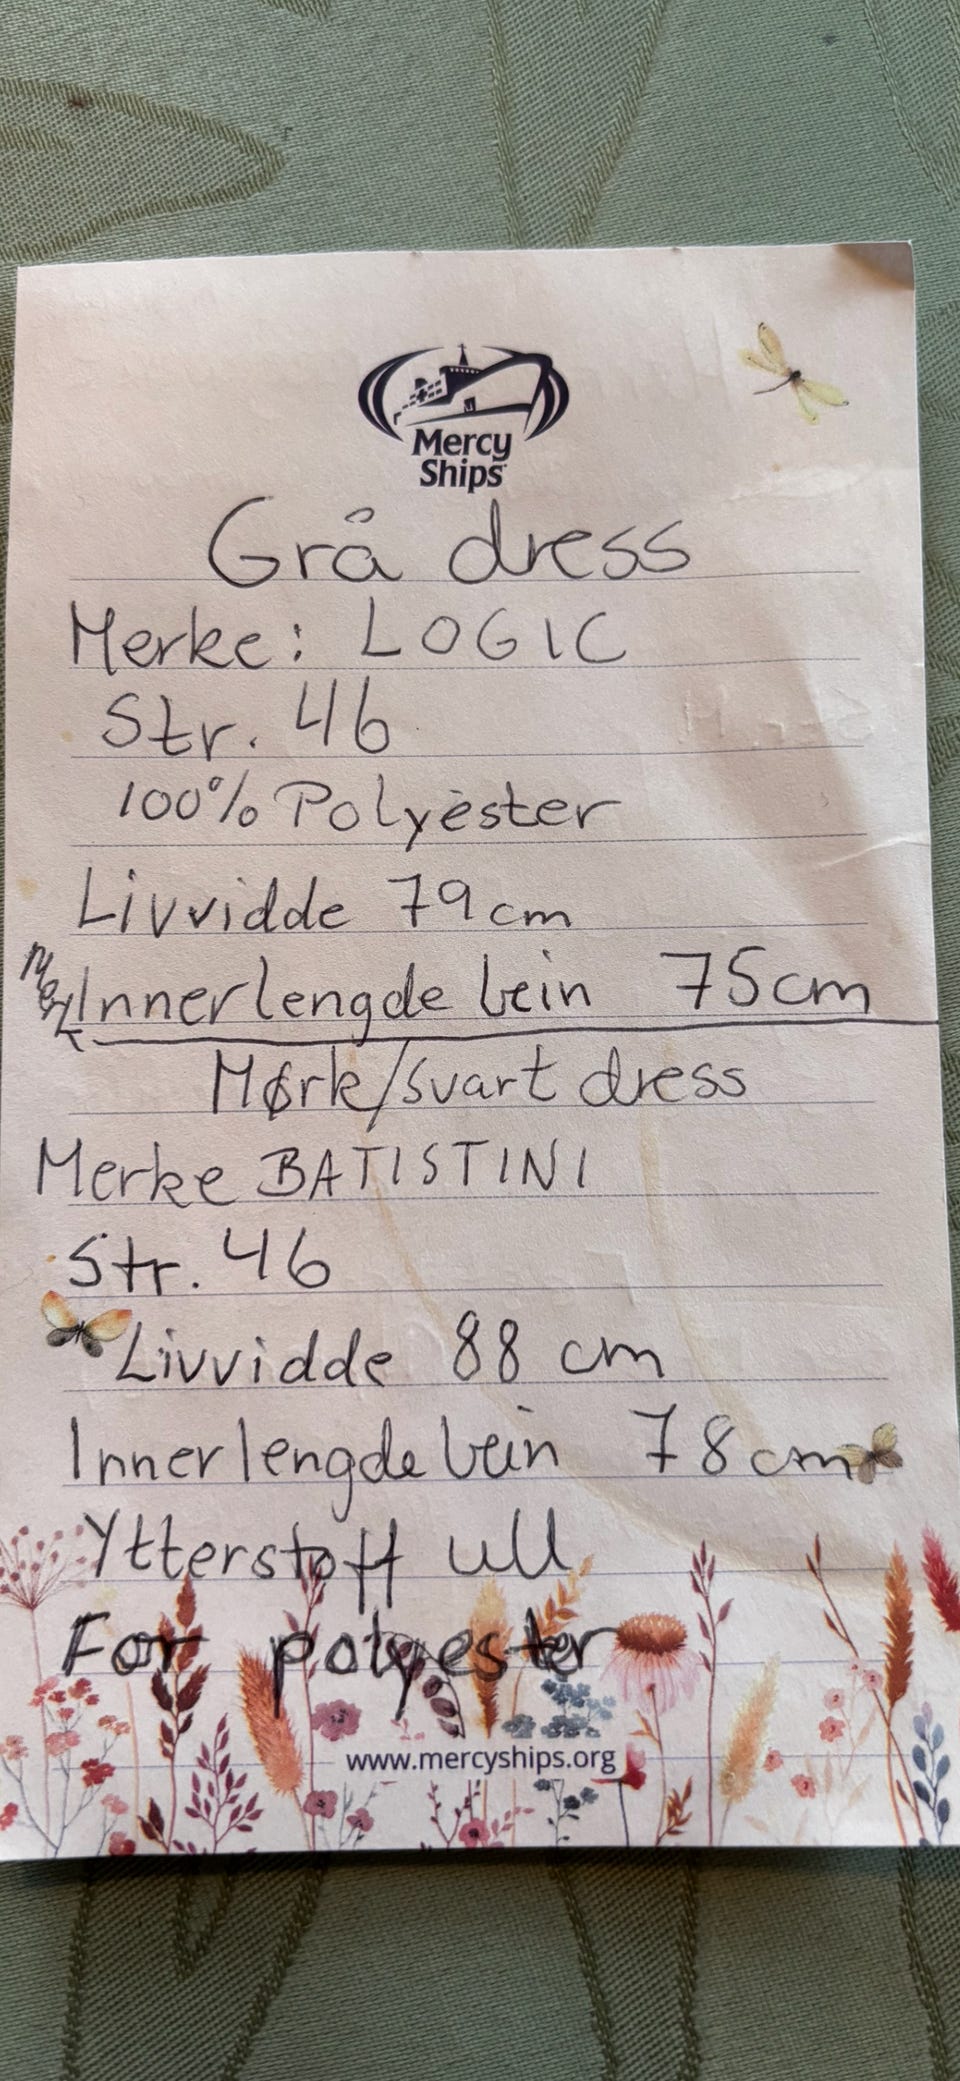 Mercy
Ships
Grå dress
Merke: LOGIC
Str. 46
100% Polyester
Livvidde 79 cm
Innerlengde bein 75cm
Mørk/svart dress
Merke BATISTINI
Str. 46
Livvidde 88 cm
Innerlengde bein 78 cm
Ytterstoff ull
For polyester
www.mercyships.org